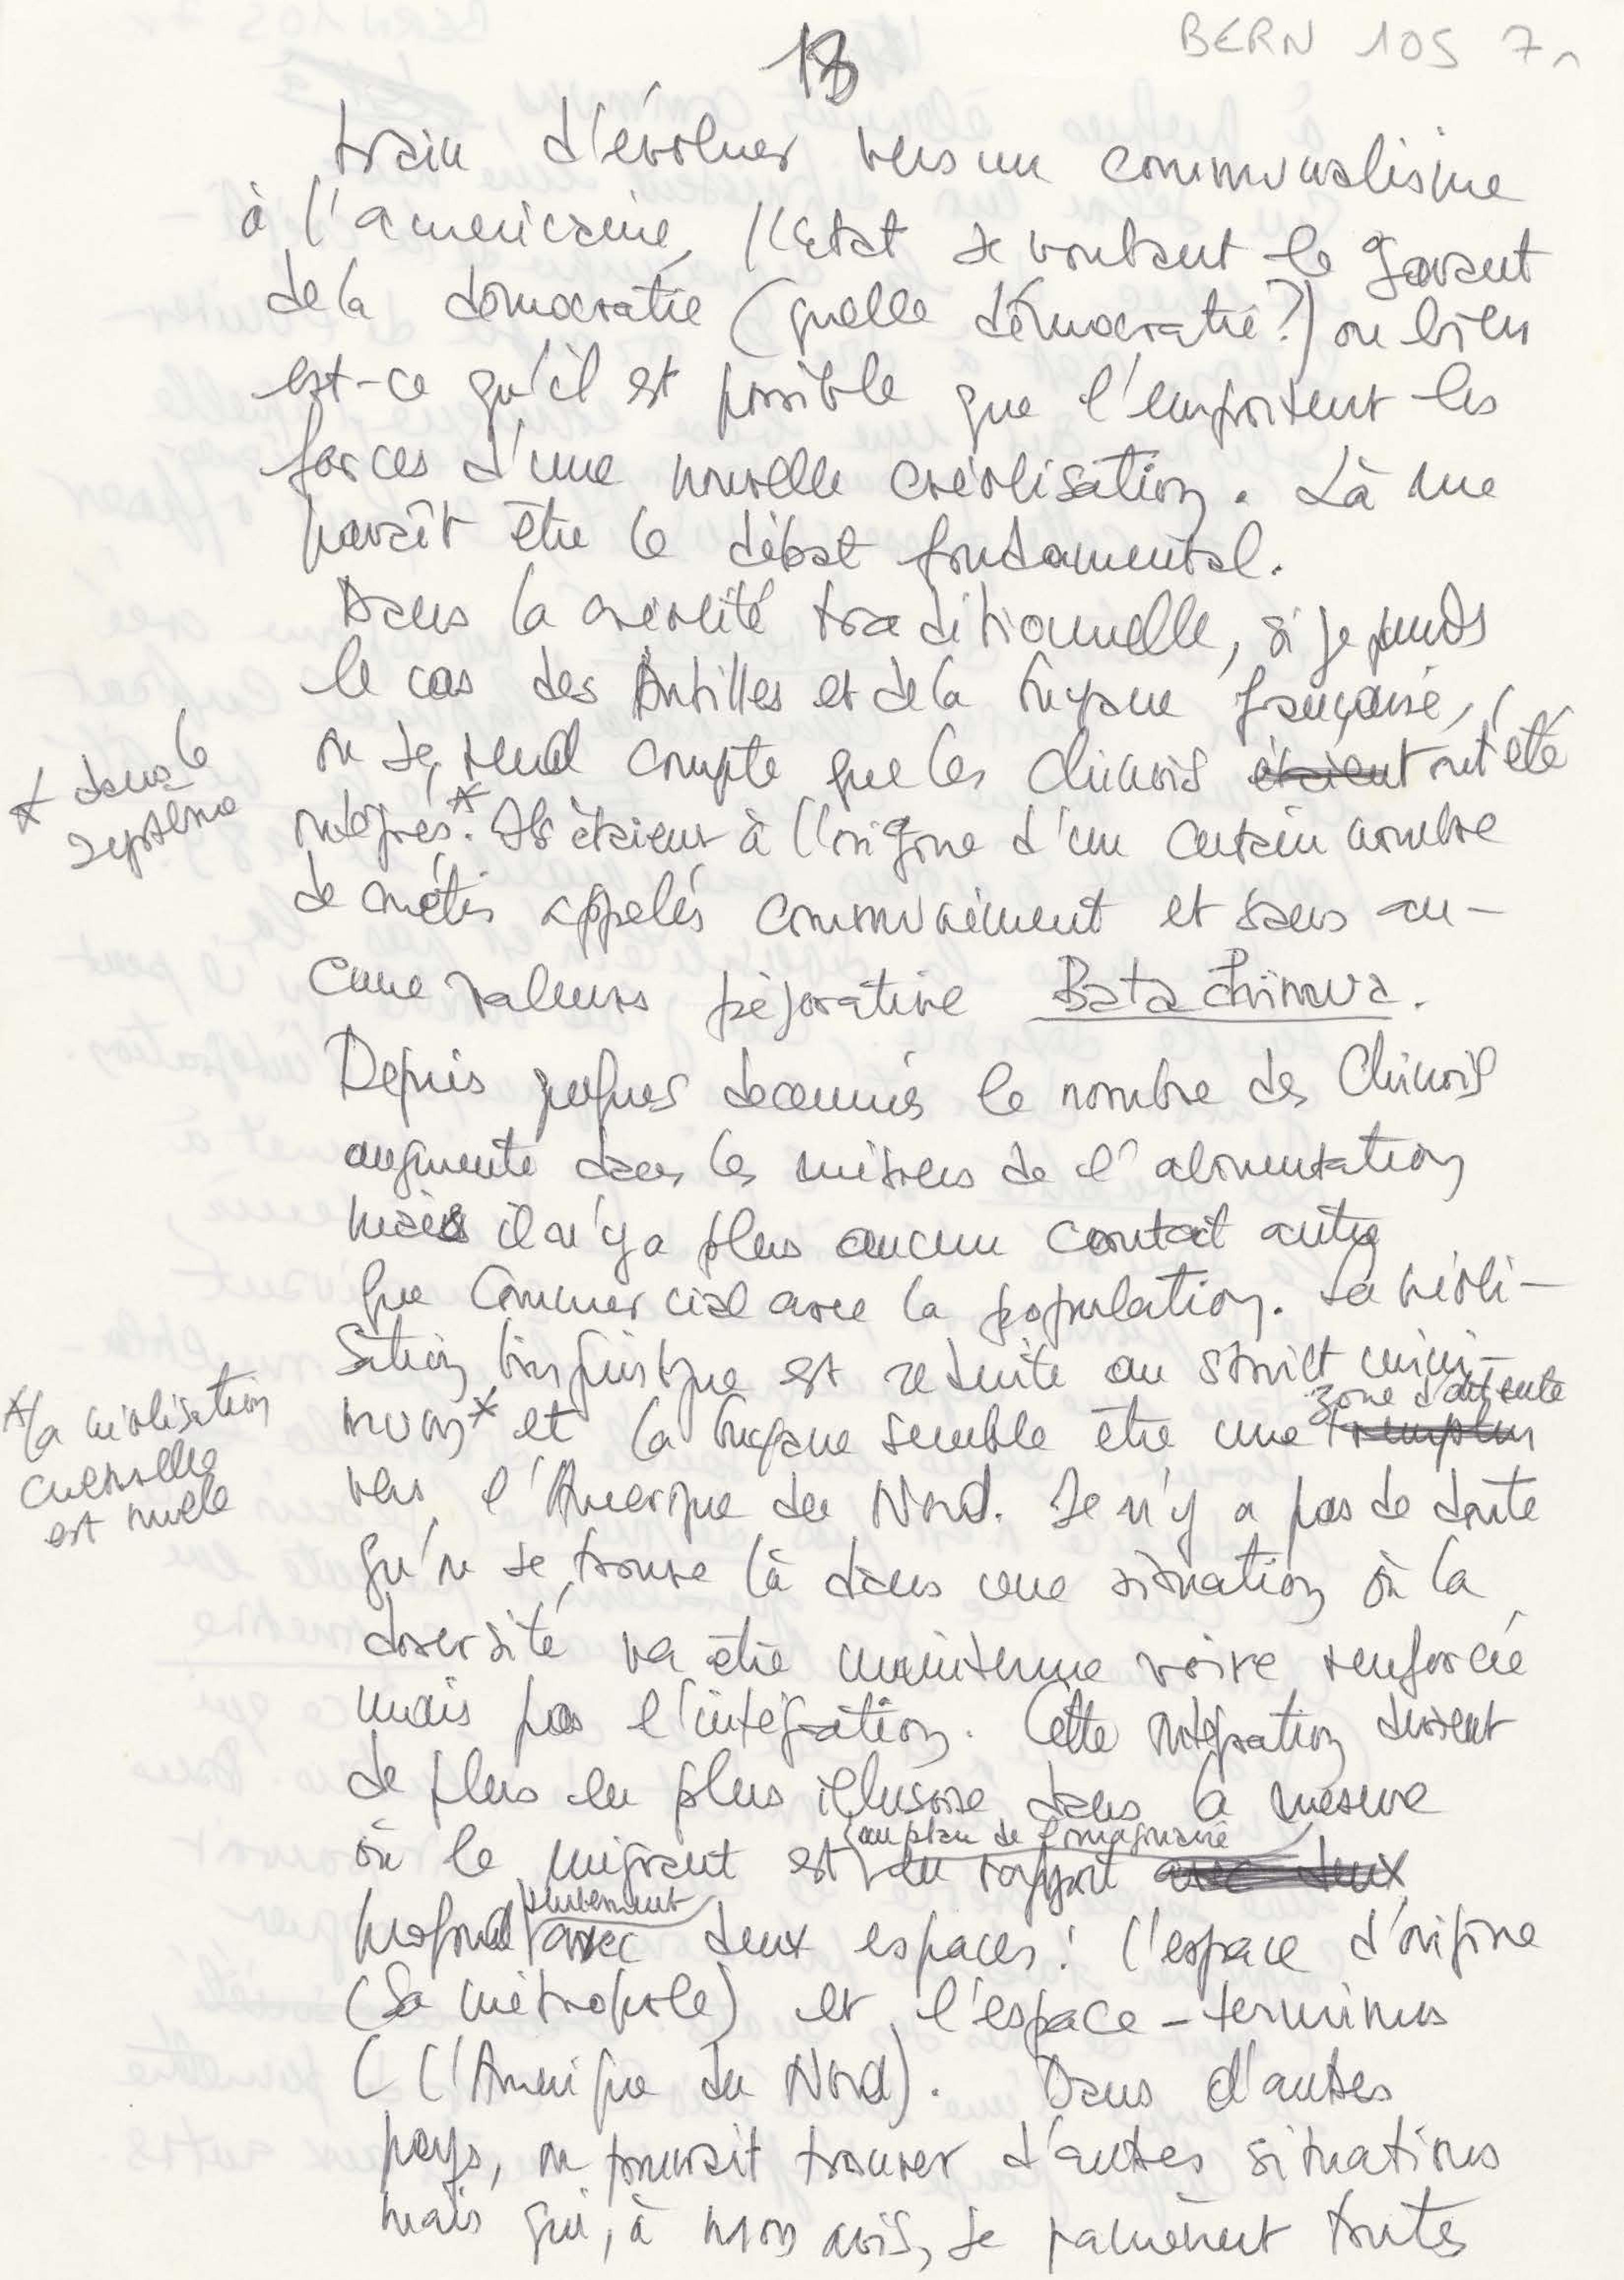 18
BERN 105 7r
train d'évoluer vers un communalisme
à l'américaine, l'Etat se voulant le garant
de la démocratie (quelle démocratie?) ou bien
est-ce qu'il est possible que l'emportent les
forces d'une nouvelle créolisation. Là me
paraît être le débat fondamental.
Dans la créolité traditionnelle, si je prends
le cas des Antilles et de la Guyane française,
on se rend compte que les Chinois étaient ont été
intégrés.* Ils étaient à l'origine d'un certain nombre
* dans le
système
de métis appelés communément et sans au-
cune valeurs péjorative Batachinwa.
Depuis quelques décennies le nombre des Chinois
augmente dans les métiers de l'alimentation
mais il n'y a plus aucun contact autre
que commercial avec la population. La créoli-
sation linguistique est réduite au strict mini-
mum* et la Guyane semble être une zone d'attente tremplin
* la créolisation
culturelle
est nulle
vers l'Amérique du Nord. Il n'y a pas de doute
qu'on se trouve là dans une situation où la
diversité va être maintenue voire renforcée
mais pas l'intégration. Cette intégration devient
de plus en plus illusoire dans la mesure
où le migrant est au plan de l'imaginaire en rapport avec deux
profond seulement avec deux espaces : l'espace d'origine
(Sa métropole) et l'espace-terminus
(l'Amérique du Nord). Dans d'autres
pays, on pourrait trouver d'autres situations
mais qui, à mon avis, se ramènent toutes